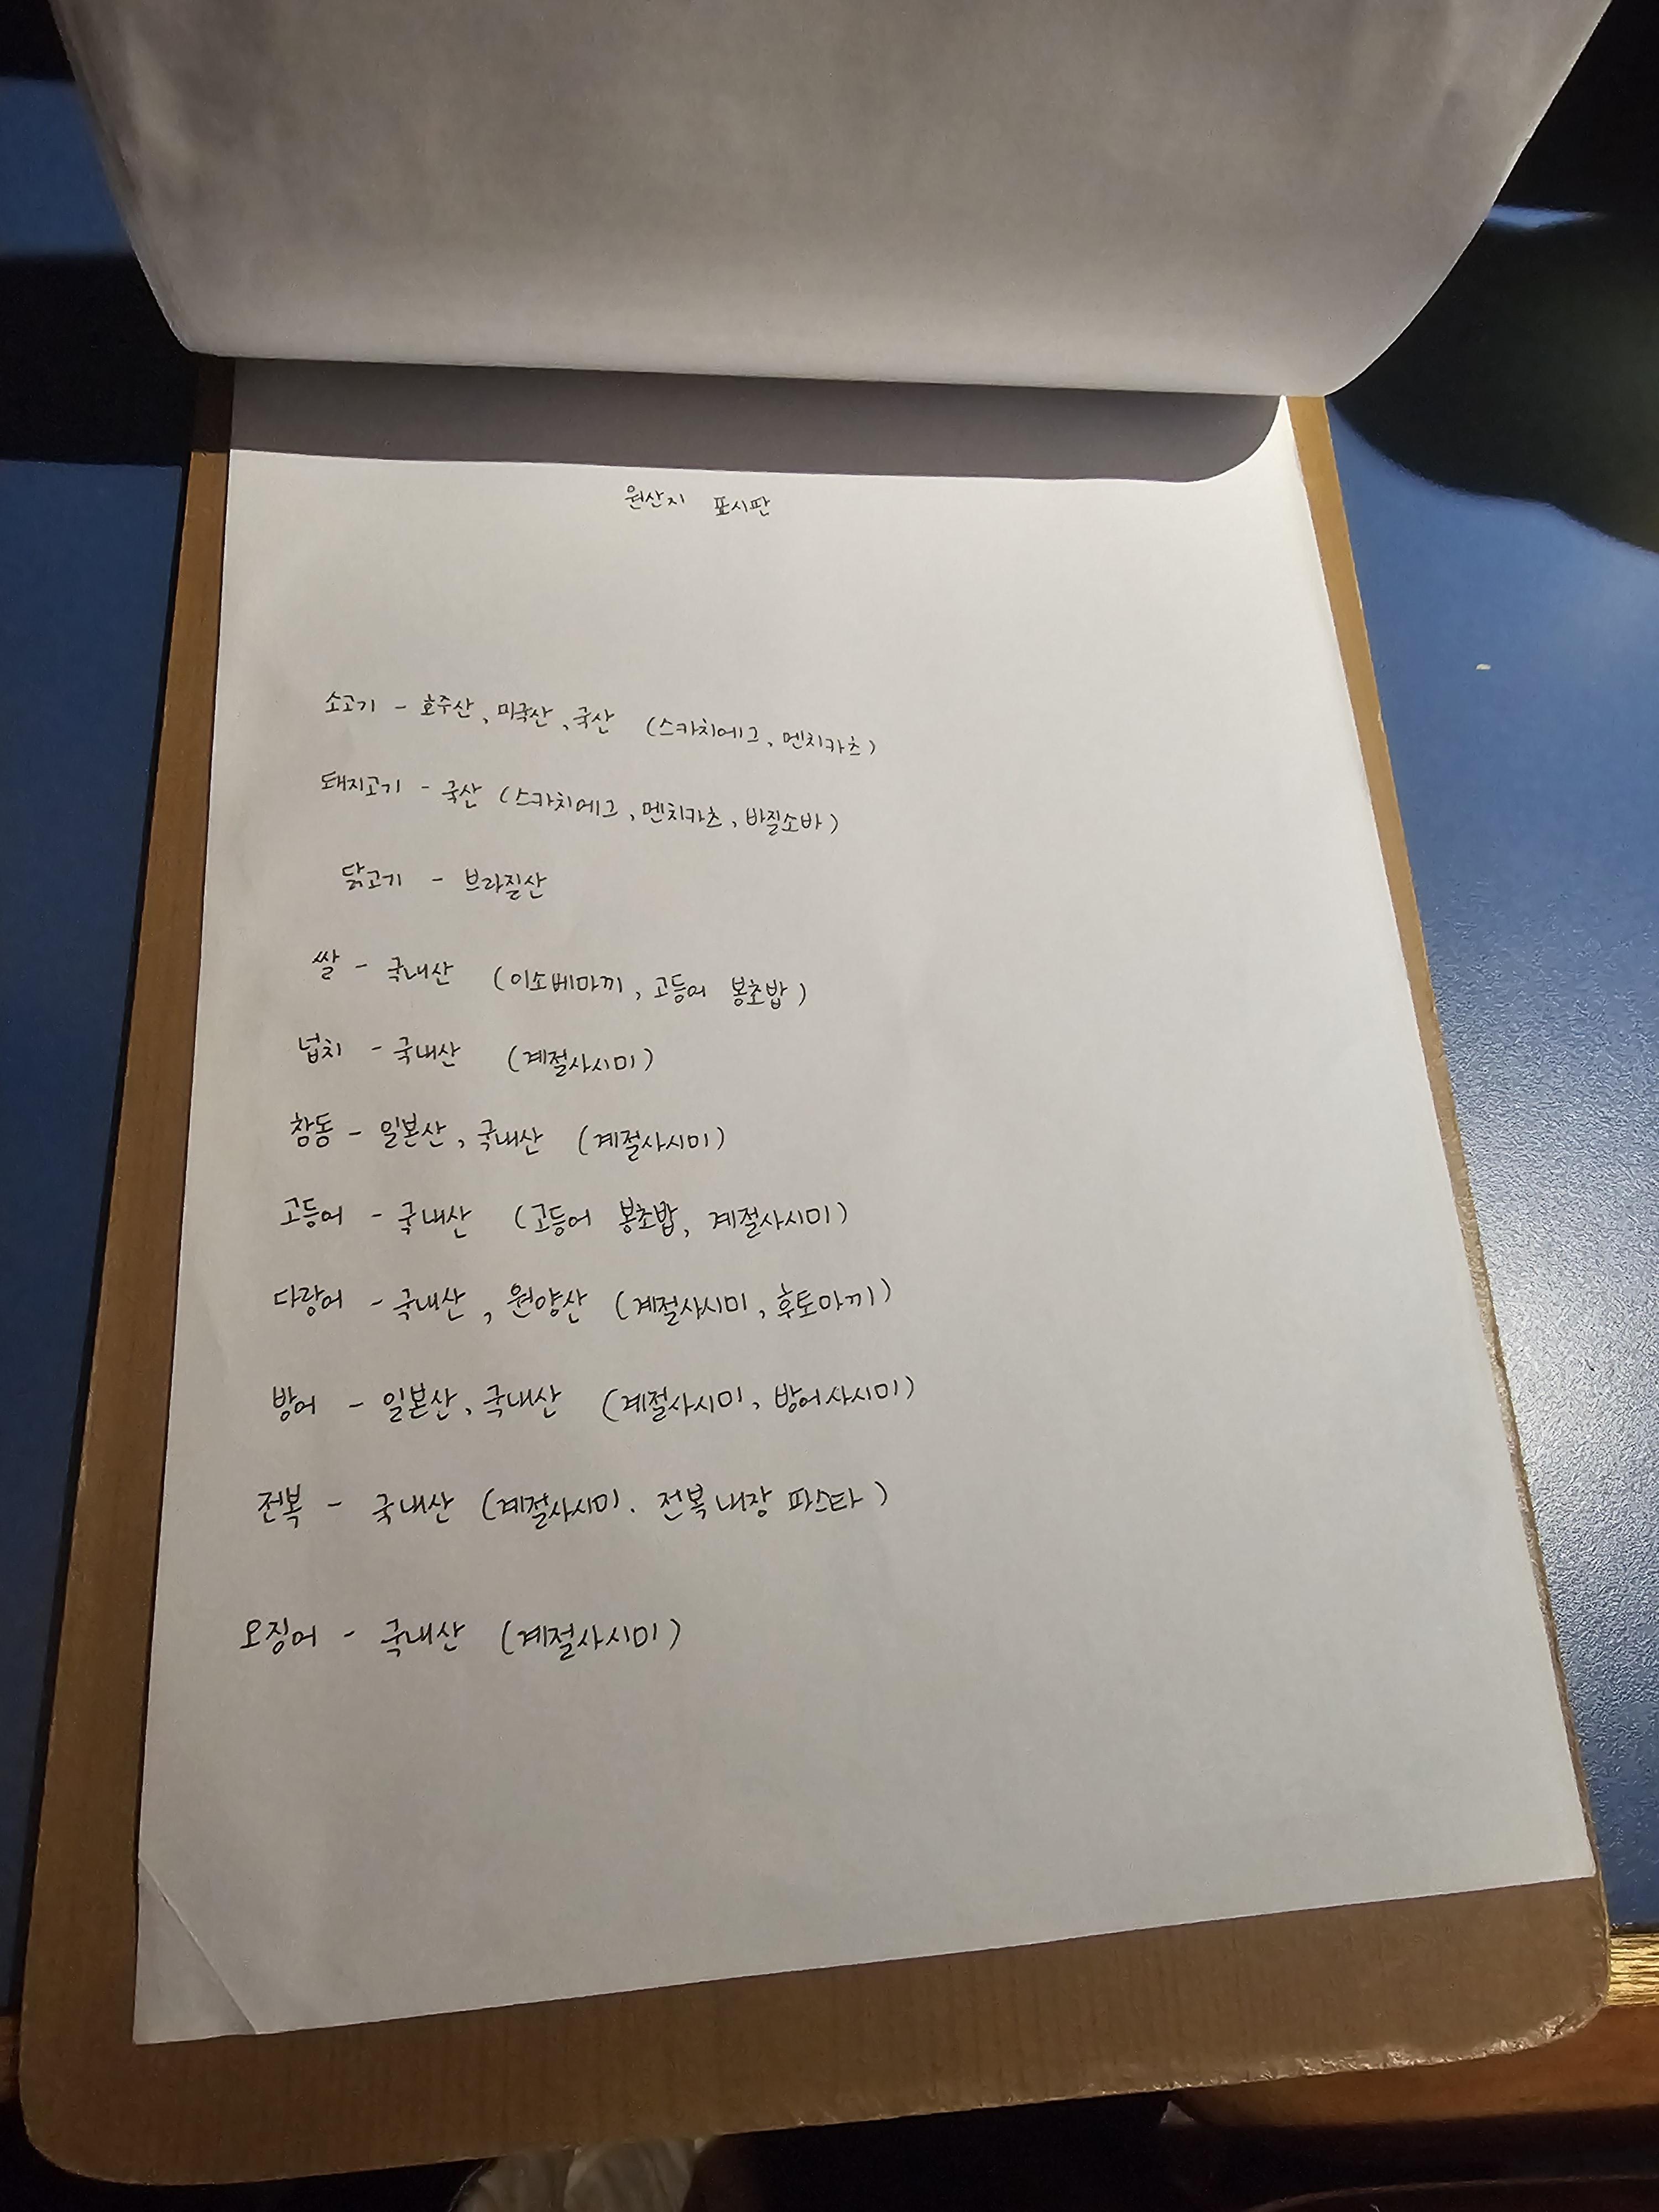 원산지 표시판
소고기 - 호주산, 미국산, 국산 (스카치에그, 멘치카츠)
돼지고기 - 국산 (스카치에그, 멘치카츠, 바질소바)
닭고기 - 브라질산
쌀 - 국내산 (이소베마끼, 고등어 봉초밥)
넙치 - 국내산 (계절사시미)
참동 - 일본산, 국내산 (계절사시미)
고등어 - 국내산 (고등어 봉초밥, 계절사시미)
다랑어 - 국내산, 원양산 (계절사시미, 후토마끼)
방어 - 일본산, 국내산 (계절사시미, 방어사시미)
전복 - 국내산 (계절사시미. 전복내장 파스타)
오징어 - 국내산 (계절사시미)